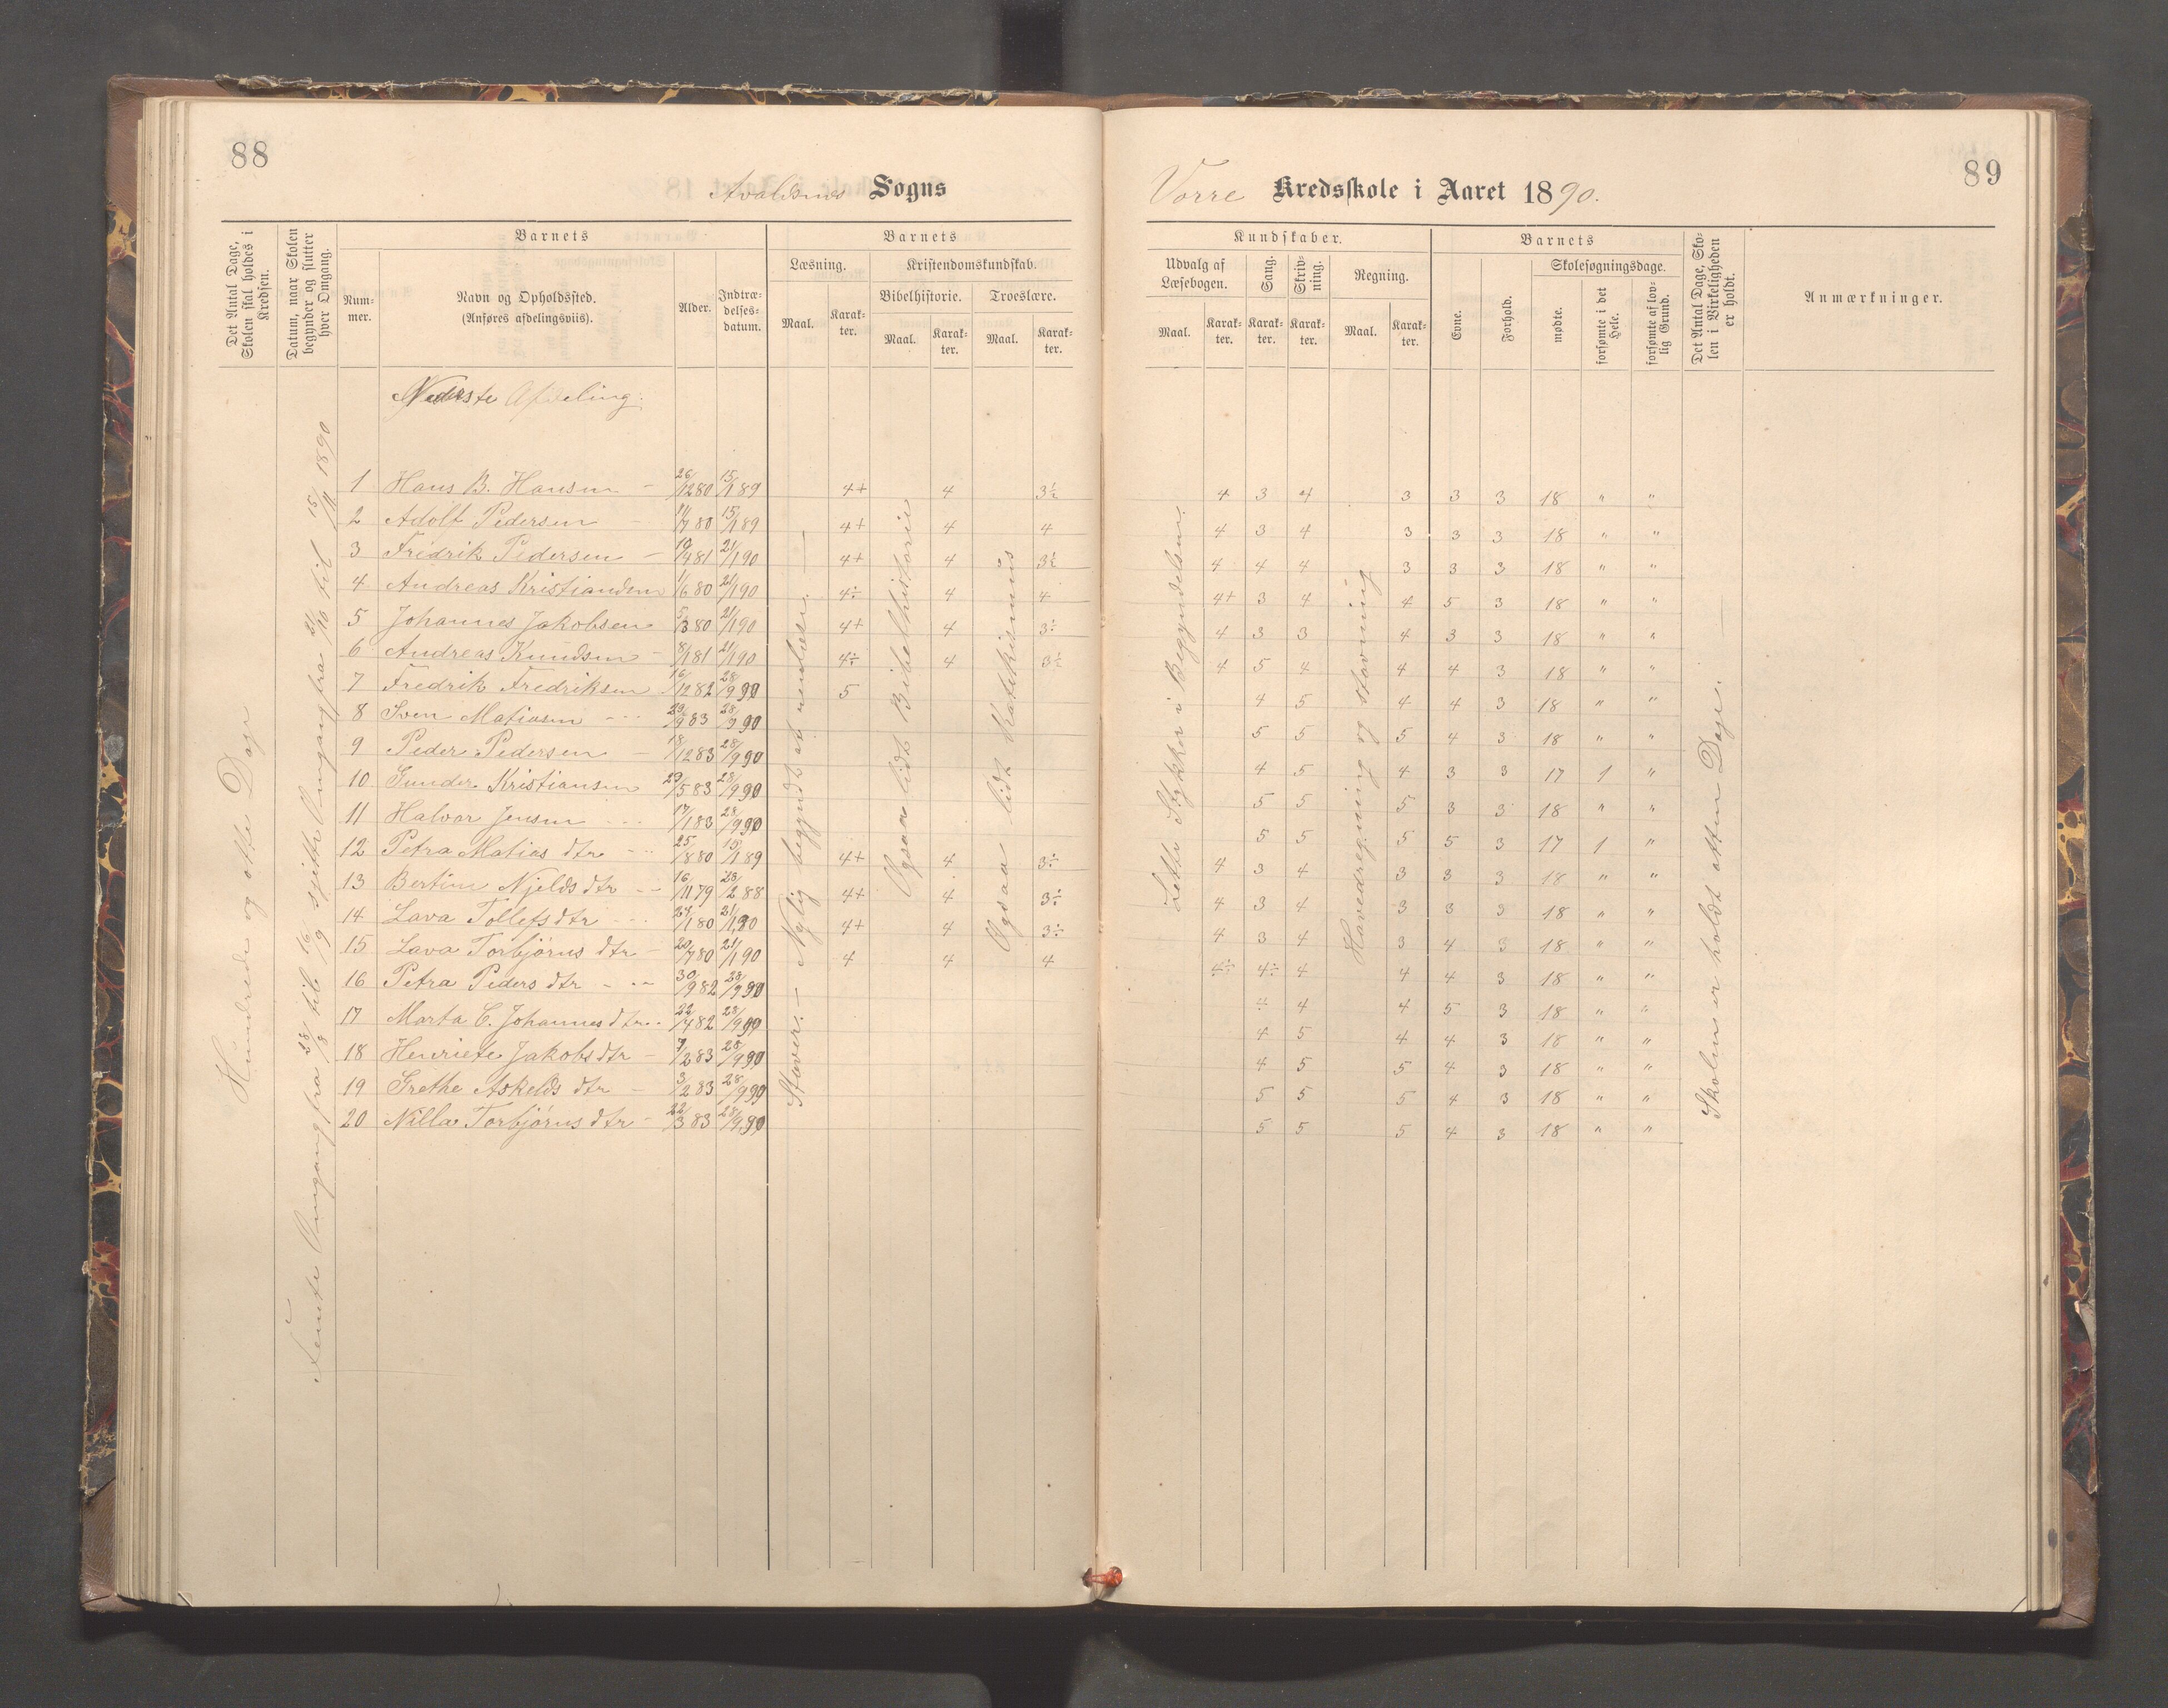 88
Avaldsnes Sogns
Det Antal Dage, Skolen skal holdes i Kredsen.
Datum, naar Skolen begynder og slutter hver Omgang.
Barnets
Num-mer.
Navn og Opholdssted. (Anføres afdelingsviis).
Alder.
Indtræ-delses-datum.
Barnets
Læsning.
Maal.
Karak-ter.
Kristendomskundskab.
Bibelhistorie.
Maal.
Karak-ter.
Troeslære.
Maal.
Karak-ter.
Nederste Afdeling.
Hundrede og otte Dage
Femte Omgang fra 28/8 til 16/9 sjette Omgang fra 21/10 til 15/11 1890
1 Hans B. Hansen 26/12 80 15/1 89 4+ 4 3½
2 Adolf Pedersen 11/7 80 15/1 89 4+ 4 4
3 Fredrik Pedersen 19/4 81 21/1 90 4+ 4 3½
4 Andreas Kristiansen 1/6 80 21/1 90 4÷ 4 4
5 Johannes Jakobsen 5/3 80 21/1 90 4+ 4 3÷
6 Andreas Knudsen 8/1 81 21/1 90 4÷ 4 3½
7 Fredrik Fredriksen 16/12 82 28/9 90 5
8 Sven Matiasen 29/9 83 28/9 90
9 Peder Pedersen 18/12 83 28/9 90
10 Gunder Kristiansen 29/5 83 28/9 90
11 Halvor Jensen 17/1 83 28/9 90
12 Petra Matias dtr 25/8 80 15/1 89 4+ 4 3÷
13 Bertine Njelds dtr 16/11 79 28/2 88 4+ 4 3÷
14 Lava Tollefs dtr 24/1 80 21/1 90 4+ 4 3÷
15 Lava Torbjørns dtr 20/7 80 21/1 90 4 4 4
16 Petra Peders dtr 30/9 82 28/9 90
17 Marta C. Johannes dtr 22/4 82 28/9 90
18 Henriete Jakobs dtr 7/2 83 28/9 90
19 Grethe Askelds dtr 3/2 83 28/9 90
20 Nilla Torbjørns dtr 22/3 83 28/9 90
Staver. – Nylig begyndt at
Ogsaa lidt Bibelhistorie
Ogsaa lidt Katekismus
89
Vorre Kredsskole i Aaret 1890.
Kundskaber.
Udvalg af Læsebogen.
Maal.
Karak-ter.
Sang.
Karak-ter.
Skriv-ning.
Karak-ter.
Regning.
Maal.
Karak-ter.
Barnets
Evne.
Forhold.
Skolesøgningsdage.
mødte.
forsømte i det Hele.
forsømte af lov-lig Grund.
Det Antal Dage, Sko-len i Virkeligheden er holdt.
Anmærkninger.
4 3 4 3 3 3 18 " "
4 3 4 3 3 3 18 " "
4 4 4 3 3 3 18 " "
4+ 3 4 4 5 3 18 " "
4 3 3 4 3 3 18 " "
4 5 4 4 4 3 18 " "
4 5 4 4 3 18 " "
5 5 5 4 3 18 " "
4 5 4 3 3 17 1 "
5 5 5 3 3 18 " "
5 5 5 5 3 17 1 "
4 3 4 3 3 3 18 " "
4 3 4 3 3 3 18 " "
4 3 4 3 4 3 18 " "
4÷ 4÷ 4 4 4 3 18 " "
4 4 4 5 3 18 " "
4 5 4 4 3 18 " "
4 5 5 4 3 18 " "
5 5 5 4 3 18 " "
5 5 5 4 3 18 " "
Lette Stykker i Begyndelsen.
Hovedregning og stavning
Skolen er holdt atten Dage.